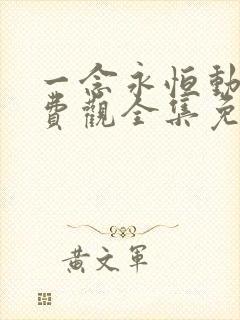 一念永恒動
費觀全集免
黃文軍